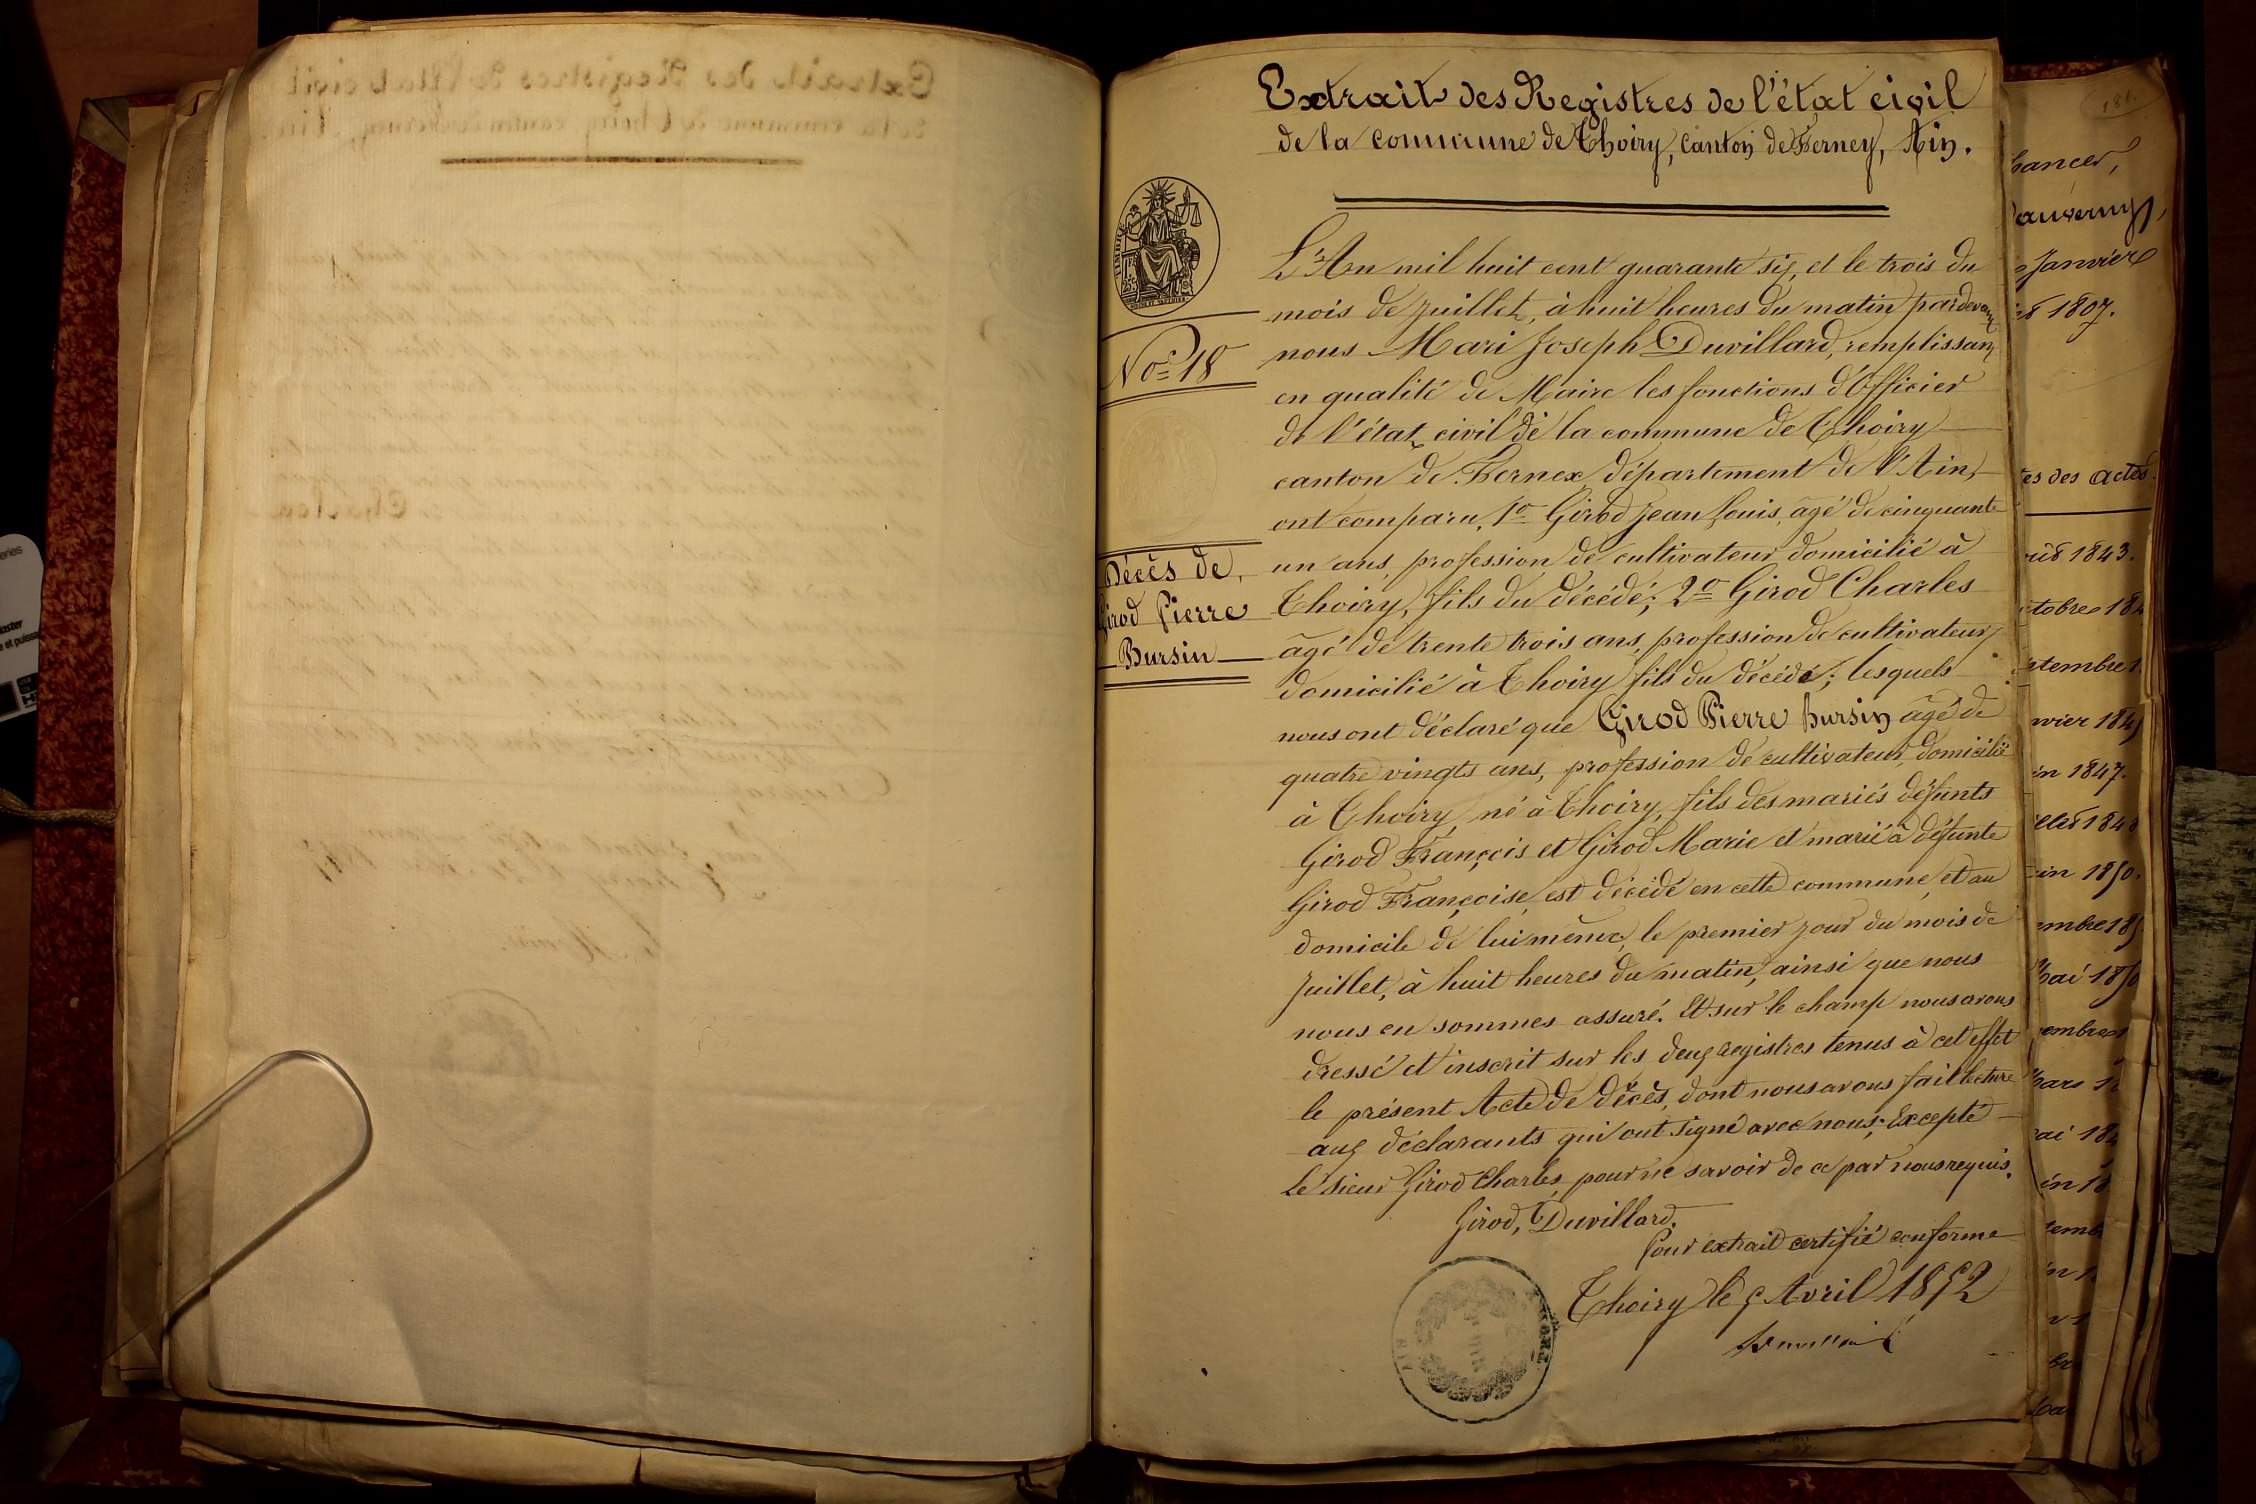 Extrait des Registres de l'état civil
de la commune de Thoiry, canton de Ferney, Ain.
L'An mil huit cent quarante six, et le trois du
mois de Juillet, à huit heures du matin pardevant
nous Mari Joseph Duvillard, remplissant
en qualité de Maire les fonctions d'Officier
de l'état civil de la commune de Thoiry
canton de Fernex, département de l'Ain,
ont comparu, 1o Girod Jean Louis, âgé de cinquante
un ans, profession de cultivateur domicilié à
Thoiry, fils du décédé; 2o Girod Charles
âgé de trente trois ans, profession de cultivateur
domicilié à Thoiry fils du décédé; lesquels
nous ont déclaré que Girod Pierre Bursin âgé de
quatre vingts ans, profession de cultivateur, domicilié
à Thoiry né à Thoiry, fils des mariés défunts
Girod François et Girod Marie et marié à défunte
Girod Françoise, est décédé en cette commune, et au
domicile de lui même, le premier jour du mois de
Juillet, à huit heures du matin, ainsi que nous
nous en sommes assuré. Et sur le champ nous avons
dressé et inscrit sur les deux registres tenus à cet effet
le présent Acte de décès, dont nous avons fait lecture
aux déclarants qui ont signé avec nous; Excepté
le sieur Girod Charles, pour ne savoir de ce par nous requis.
Girod, Duvillard.
Pour extrait certifié conforme
Thoiry le 5 Avril 1852
TIMBRE
No 18
Décès de
Girod Pierre
Bursin
181.
Janvier
1807.
es des actes
1843.
tobre 184
tembre 1
nvier 184
in 1847.
1848
in 1850.
embre 185
Mai 185
embre 1
Mars 1
ai 184
in 18
temb
in 1